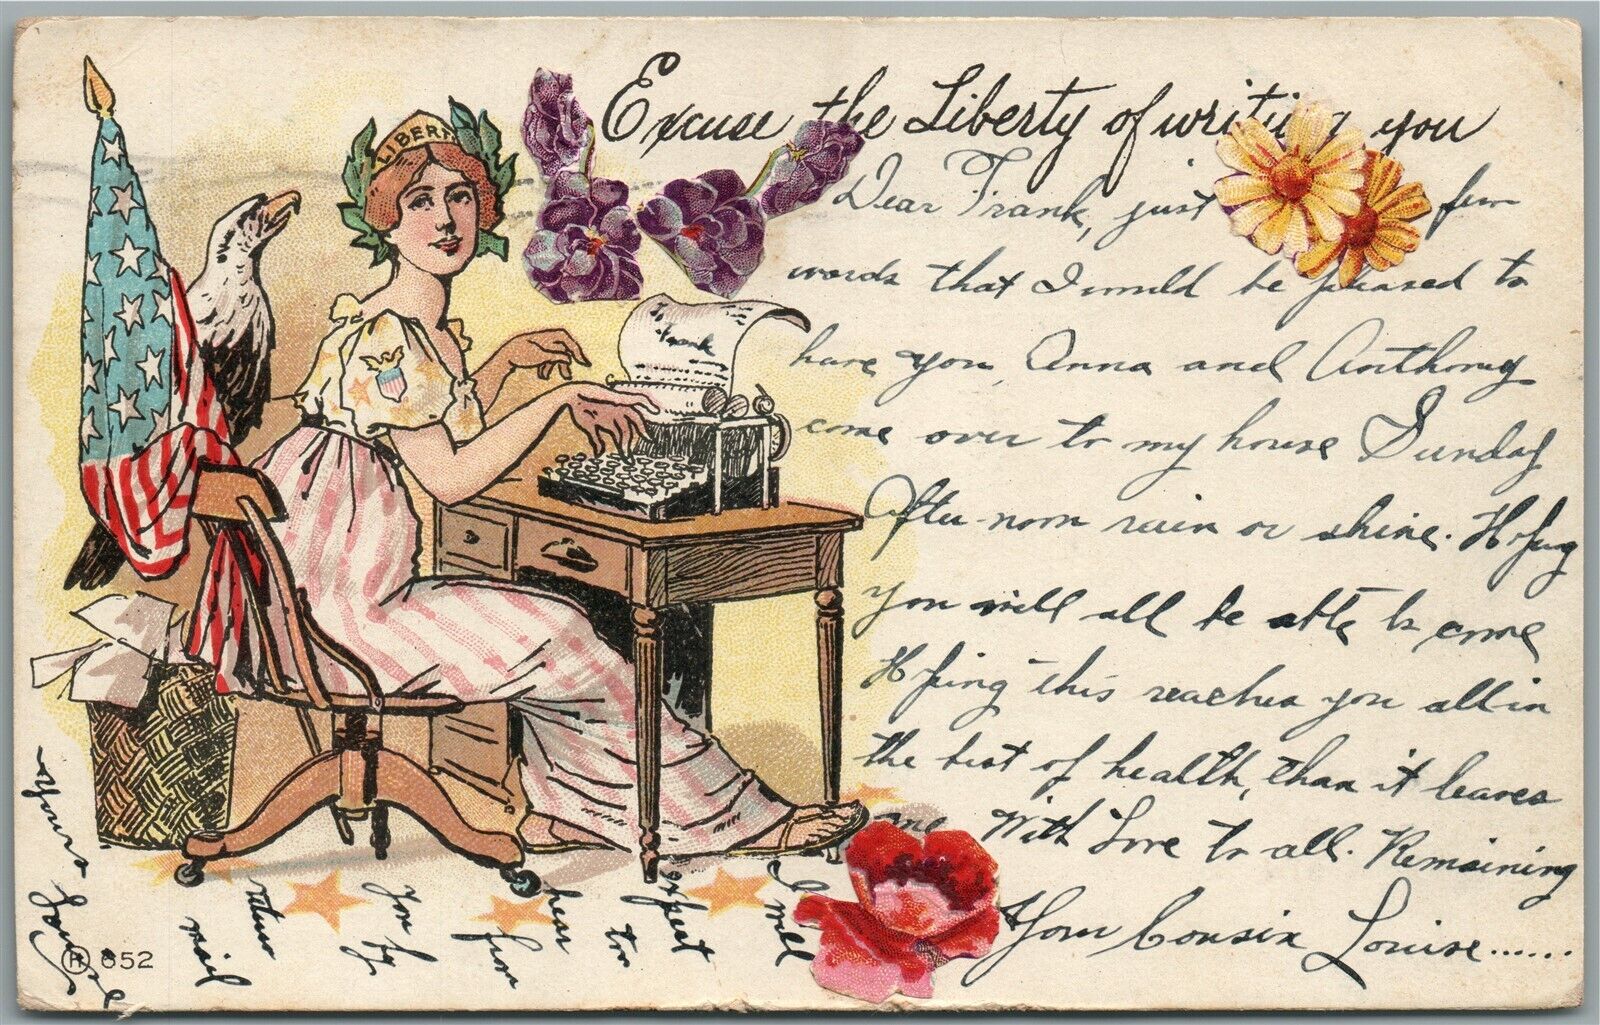 Excuse the Liberty of writing you
LIBERTY
To
Frank
Dear Frank, just few
words that I would be pleased to
have you, Anna and Anthony
come over to my house Sunday
After-noon rain or shine. Hoping
you will all be able to come
Hoping this reaches you all in
the best of health, than it leaves
me With Love to all. Remaining
Your Cousin Louise......
I will
expect
to
hear
from
you by
return
mail
Yours
Louise
H 652